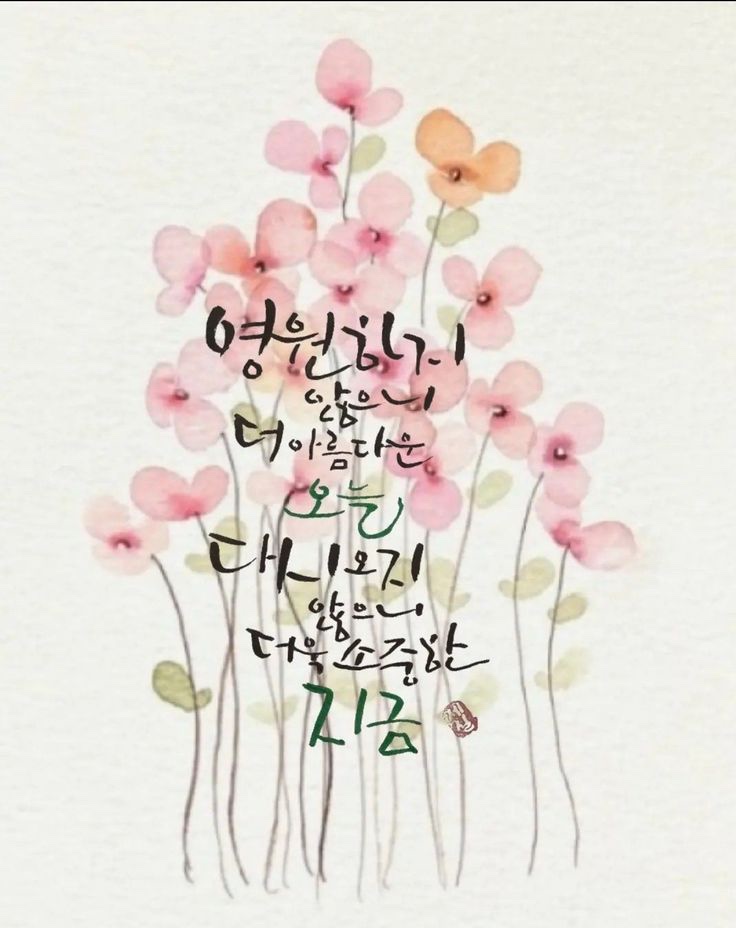 영원하지
않으니
더 아름다운
오늘
다시 오지
않으니
더욱 소중한
지금